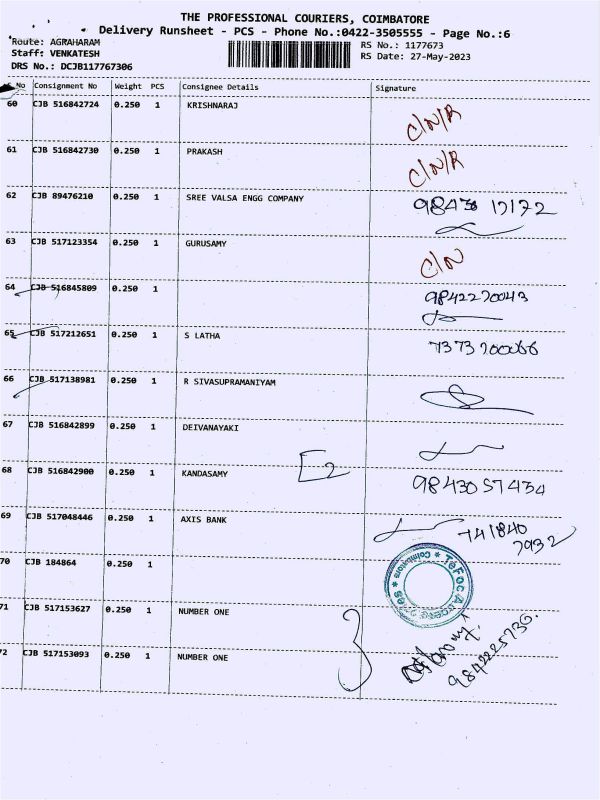 THE PROFESSIONAL COURIERS, COIMBATORE
Delivery Runsheet - PCS - Phone No.:0422-3505555 - Page No.:6
Route: AGRAHARAM
RS No.: 1177673
Staff: VENKATESH
RS Date: 27-May-2023
DRS No.: DCJB117767306
No Consignment No Weight PCS Consignee Details Signature
60 CJB 516842724 0.250 1 KRISHNARAJ
C/N/R
61 CJB 516842730 0.250 1 PRAKASH
C/N/R
62 CJB 89476210 0.250 1 SREE VALSA ENGG COMPANY
98430 17172
63 CJB 517123354 0.250 1 GURUSAMY
C/N
64 CJB 516845809 0.250 1
9842270043
65 CJB 517212651 0.250 1 S LATHA
7373700066
66 CJB 517138981 0.250 1 R SIVASUPRAMANIYAM
67 CJB 516842899 0.250 1 DEIVANAYAKI
68 CJB 516842900 0.250 1 KANDASAMY
E2
98430 57434
69 CJB 517048446 0.250 1 AXIS BANK
741840
7932
70 CJB 184864 0.250 1
Coimbatore
71 CJB 517153627 0.250 1 NUMBER ONE
3
72 CJB 517153093 0.250 1 NUMBER ONE
9842225730.